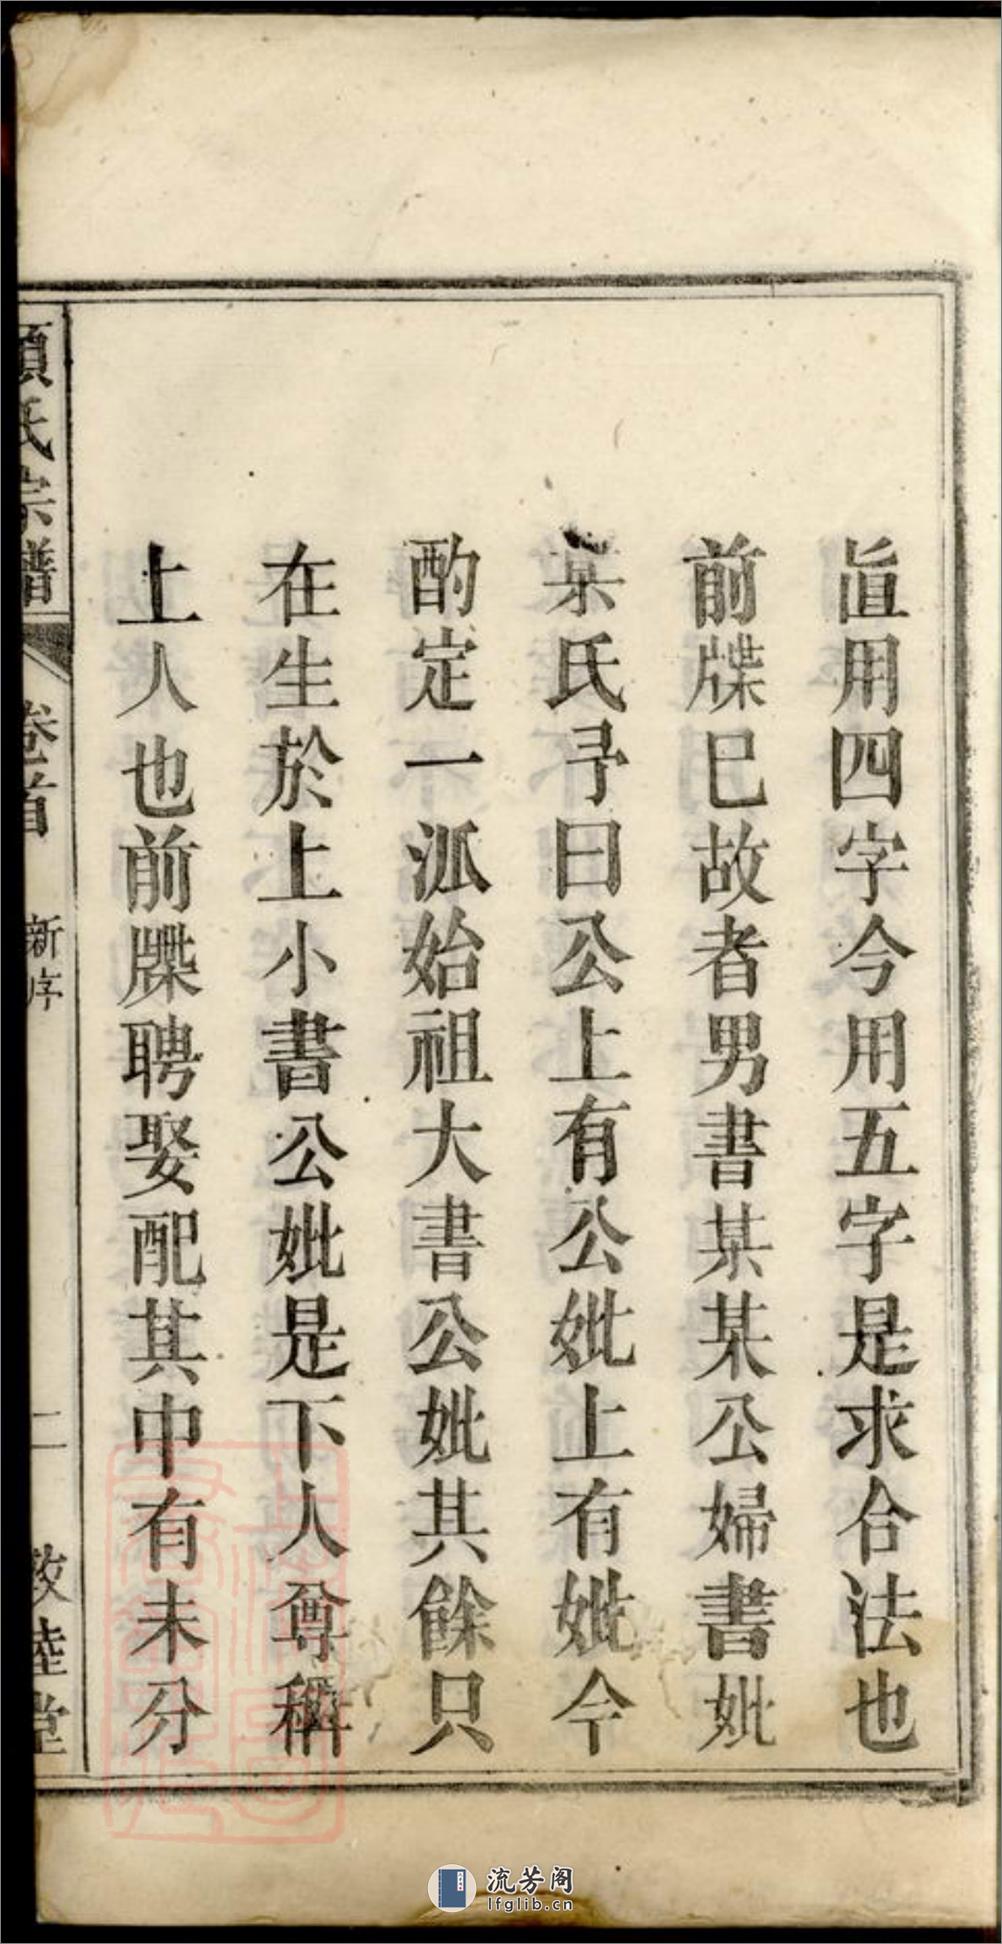 眞用四字今用五字是求合法也
前牒巳故者男書某某公婦書妣
某氏予曰公上有公妣上有妣今
酌定一派始祖大書公妣其餘只
在生於上小書公妣是下人尊稱
上人也前牒聘娶配其中有未分
項氏宗譜
卷首
新序
二
敦睦堂
流芳阁
lfglib.cn